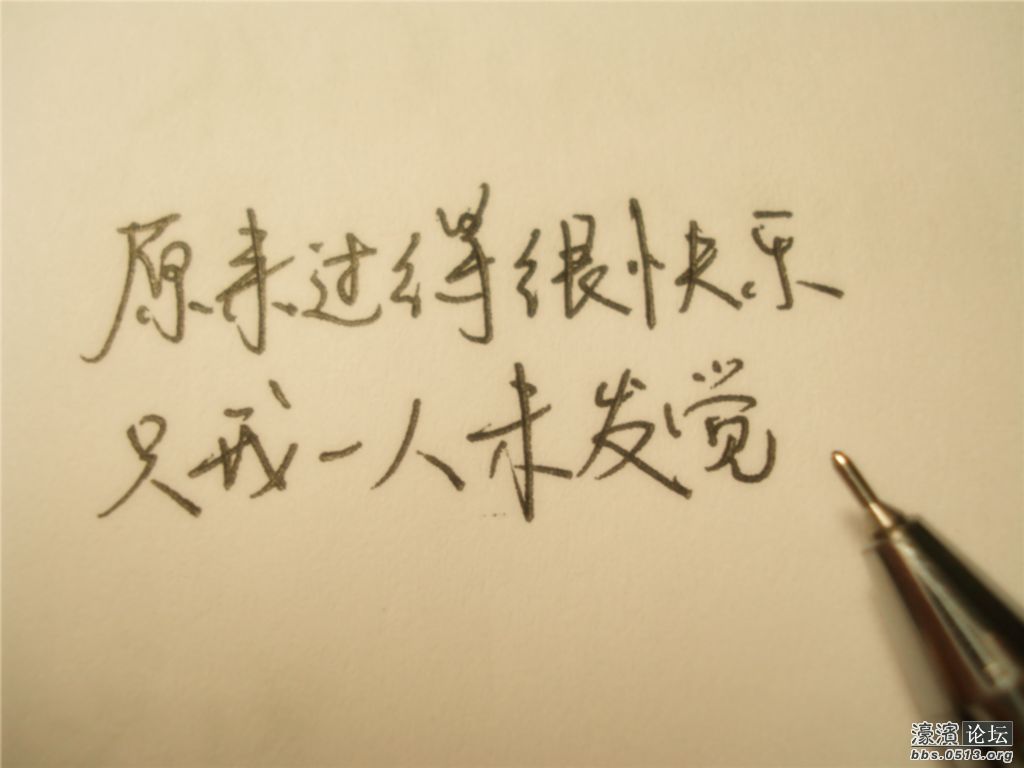 原来过得很快乐
只我一人未发觉
濠滨论坛
bbs.0513.org